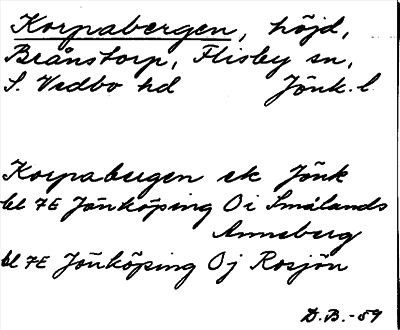 Korpabergen, höjd,
Brånstorp, Flisby sn,
S. Vedbo hd Jönk. l
Korpabergen ek Jönk
bl 7E Jönköping Oi Smålands
Anneberg
bl 7E Jönköping Oj Rosjön
D.B.-59